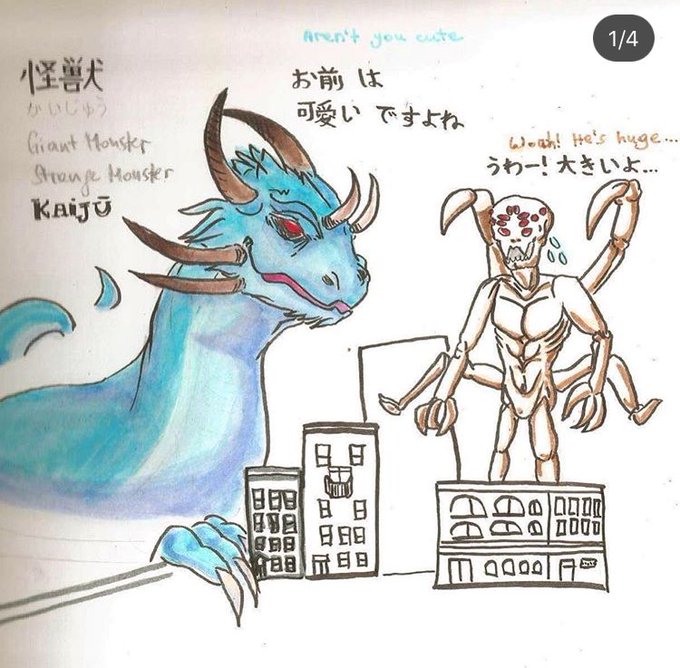 1/4
怪獣
かいじゅう
Giant Monster
Strange Monster
KAIJŪ
Aren't you cute
お前 は
可愛い ですよね
Woah! He's huge...
うわー! 大きいよ...